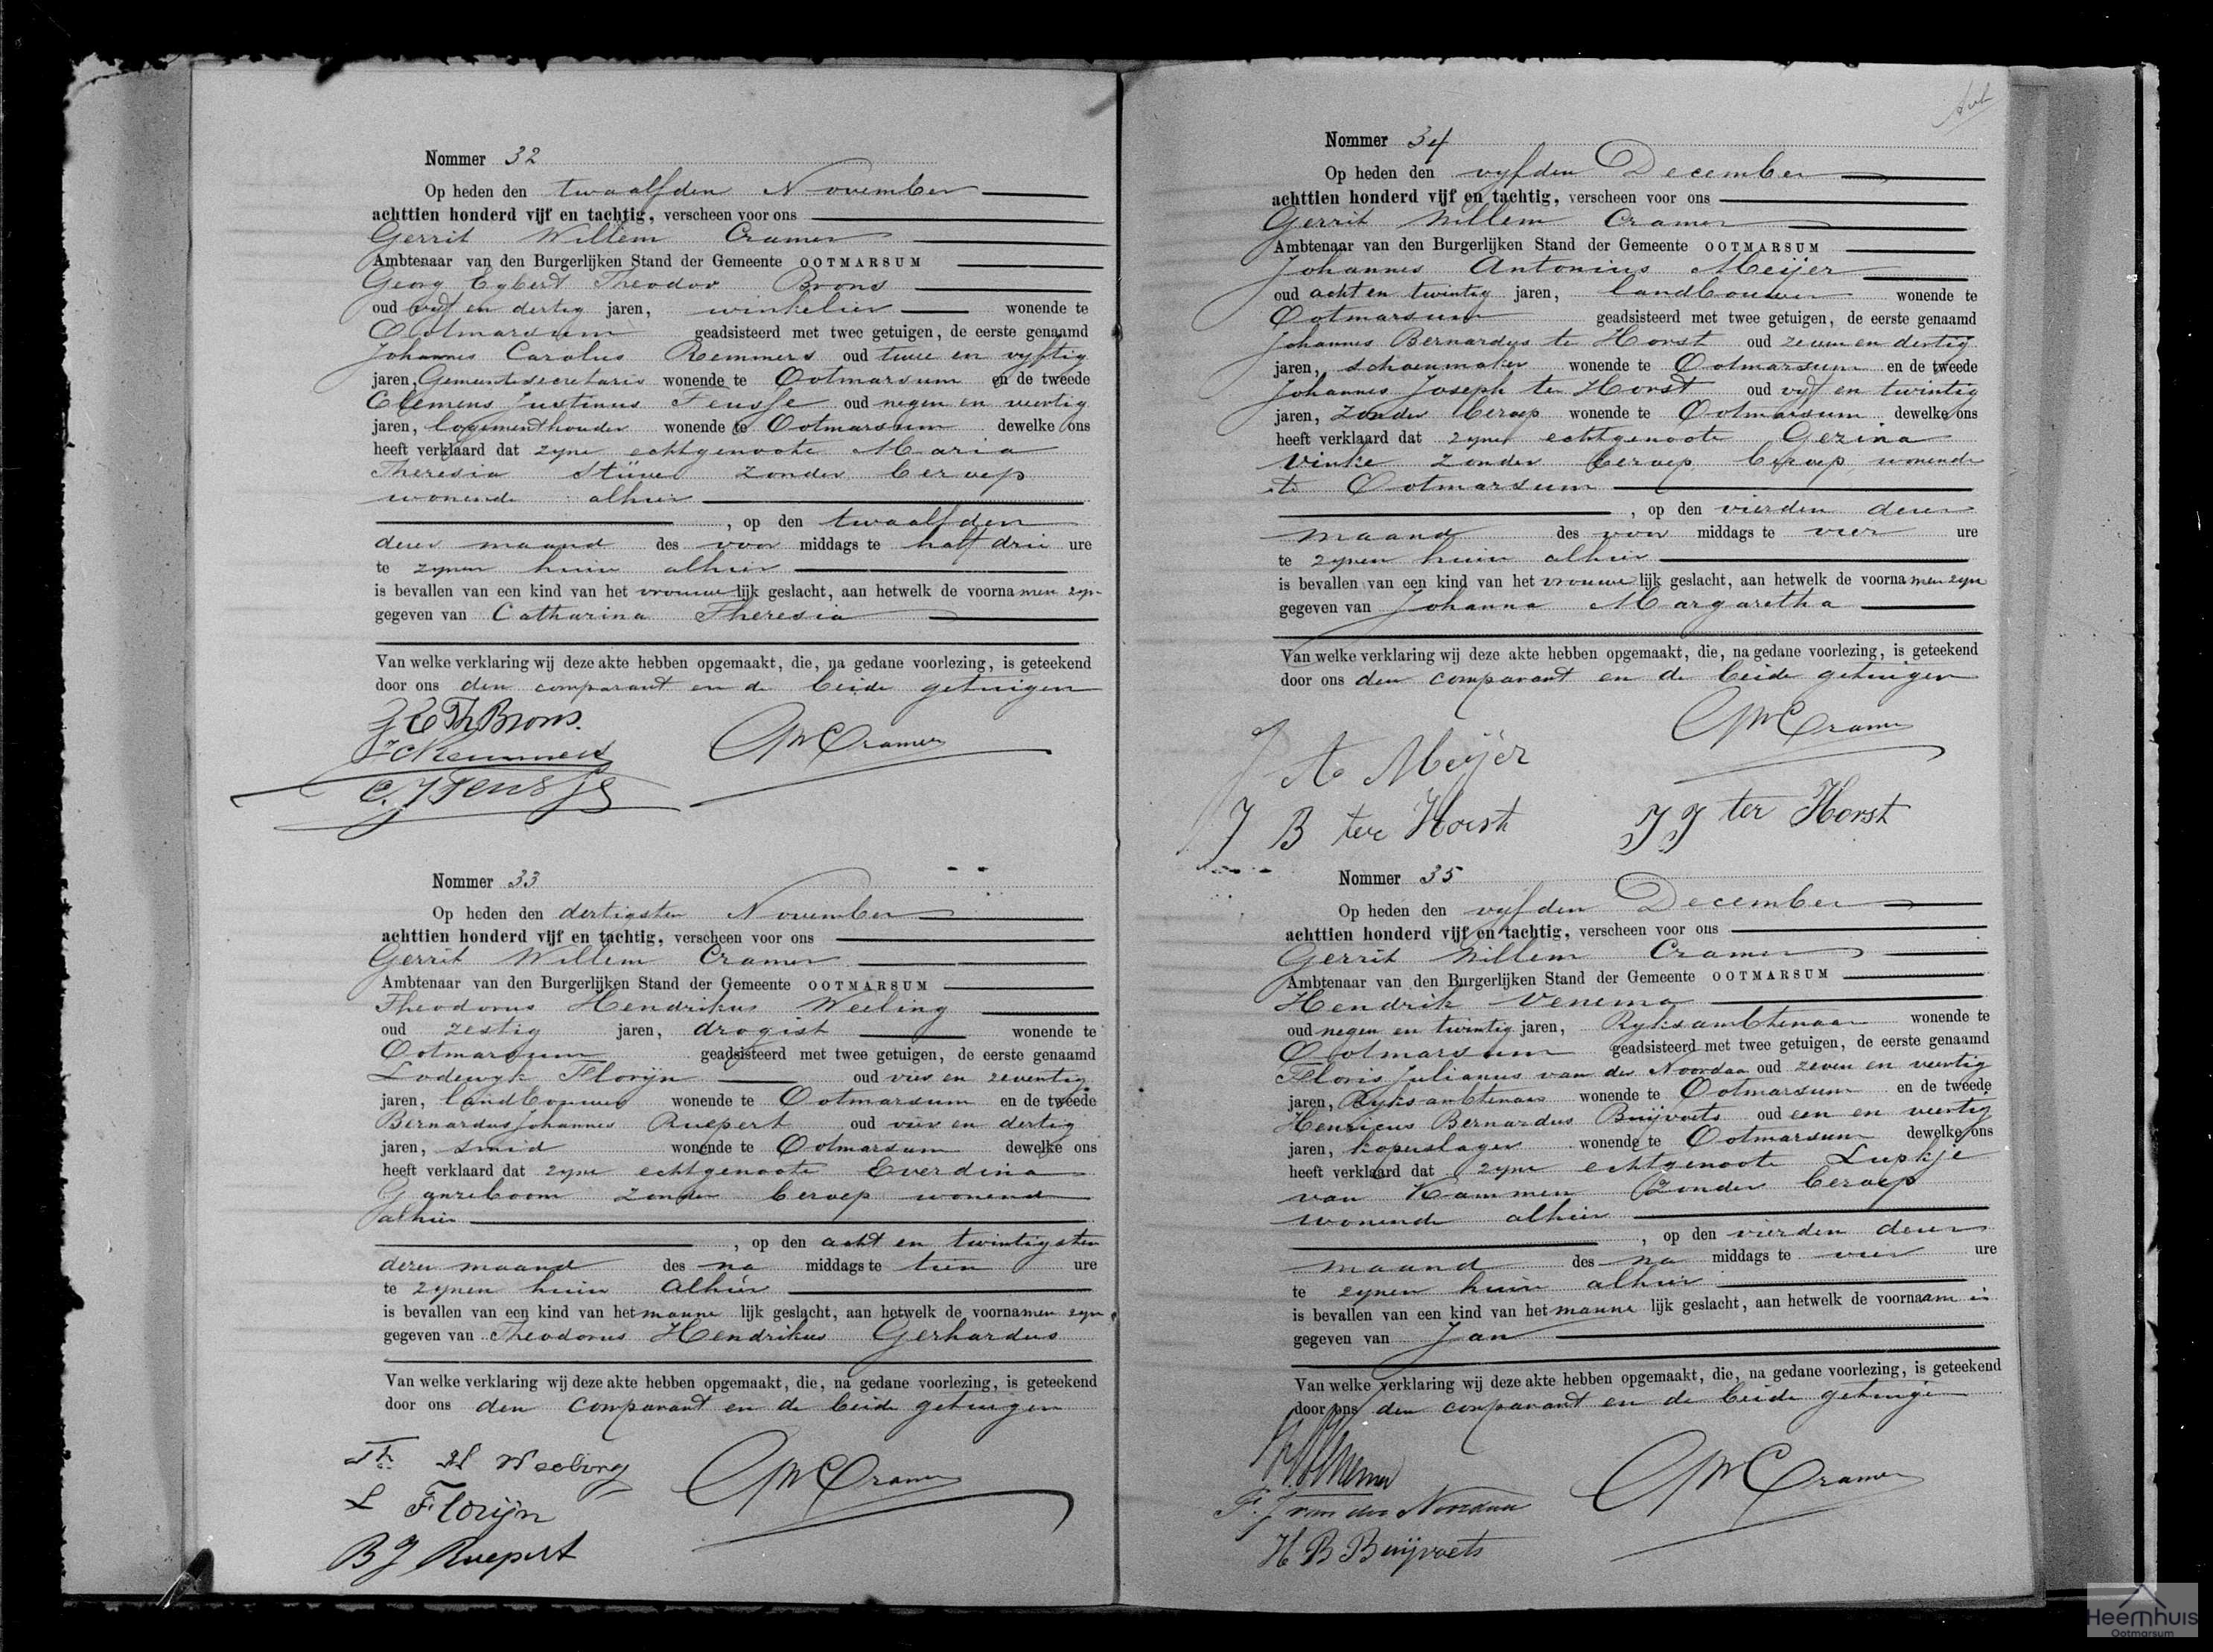 Nommer 32
Op heden den twaalfden November
achttien honderd vijf en tachtig, verscheen voor ons
Gerrit Willem Cramer
Ambtenaar van den Burgerlijken Stand der Gemeente OOTMARSUM
Georg Egbert Theodor Brons
oud vijf en dertig jaren, winkelier wonende te
Ootmarsum geadsisteerd met twee getuigen, de eerste genaamd
Johannes Carolus Remmers oud twee en vyftig
jaren, Gemeentesecretaris wonende te Ootmarsum en de tweede
Clemens Justinus Feusse oud negen en veertig
jaren, logementhouder wonende te Ootmarsum dewelke ons
heeft verklaard dat zyne echtgenoote Maria
Theresia Stüve zonder beroep
wonende alhier
, op den twaalfden
dezer maand des voor middags te half drie ure
te zynen huize alhier
is bevallen van een kind van het vrouwelijk geslacht, aan hetwelk de voornamen zyn
gegeven van Catharina Theresia
Van welke verklaring wij deze akte hebben opgemaakt, die, na gedane voorlezing, is geteekend
door ons den comparant en de beide getuigen
G E Th Brons.
GW Cramer
JC Remmers
C. J Feusse
Nommer 33
Op heden den dertigsten November
achttien honderd vijf en tachtig, verscheen voor ons
Gerrit Willem Cramer
Ambtenaar van den Burgerlijken Stand der Gemeente OOTMARSUM
Theodorus Hendrikus Weeling
oud zestig jaren, drogist wonende te
Ootmarsum geadsisteerd met twee getuigen, de eerste genaamd
Lodewyk Florijn oud vier en zeventig
jaren, landbouwer wonende te Ootmarsum en de tweede
Bernardus Johannes Ruepert oud vier en dertig
jaren, smid wonende te Ootmarsum dewelke ons
heeft verklaard dat zyne echtgenoote Everdina
Ganzeboom zonder beroep wonende
alhier
, op den acht en twintigsten
dezer maand des na middags te tien ure
te zynen huize alhier
is bevallen van een kind van het mannelijk geslacht, aan hetwelk de voornamen zyn
gegeven van Theodorus Hendrikus Gerhardus
Van welke verklaring wij deze akte hebben opgemaakt, die, na gedane voorlezing, is geteekend
door ons den comparant en de beide getuigen
Th H Weeling
GW Cramer
L Florijn
B J Ruepert
Nommer 34
Op heden den vyfden December
achttien honderd vijf en tachtig, verscheen voor ons
Gerrit Willem Cramer
Ambtenaar van den Burgerlijken Stand der Gemeente OOTMARSUM
Johannes Antonius Meijer
oud acht en twintig jaren, landbouwer wonende te
Ootmarsum geadsisteerd met twee getuigen, de eerste genaamd
Johannes Bernardus te Horst oud zeven en dertig
jaren, schoenmaker wonende te Ootmarsum en de tweede
Johannes Joseph ter Horst oud vyf en twintig
jaren, zonder beroep wonende te Ootmarsum dewelke ons
heeft verklaard dat zyne echtgenoote Gezina
Vinke zonder beroep beroep wonende
te Ootmarsum
, op den vierden dezer
maand des voor middags te vier ure
te zynen huize alhier
is bevallen van een kind van het vrouwelijk geslacht, aan hetwelk de voornamen zyn
gegeven van Johanna Margaretha
Van welke verklaring wij deze akte hebben opgemaakt, die, na gedane voorlezing, is geteekend
door ons den comparant en de beide getuigen
GW Cramer
J A Meijer
J B ter Horst J J ter Horst
Nommer 35
Op heden den vyfden December
achttien honderd vijf en tachtig, verscheen voor ons
Gerrit Willem Cramer
Ambtenaar van den Burgerlijken Stand der Gemeente OOTMARSUM
Hendrik Venema
oud negen en twintig jaren, Ryksambtenaar wonende te
Ootmarsum geadsisteerd met twee getuigen, de eerste genaamd
Floris Julianus van der Noordaa oud zeven en veertig
jaren, Ryksambtenaar wonende te Ootmarsum en de tweede
Henricus Bernardus Buijvoets oud een en veertig
jaren, koperslager wonende te Ootmarsum dewelke ons
heeft verklaard dat zyne echtgenoote Lupkje
van Kammen zonder beroep
wonende alhier
, op den vierden dezer
maand des na middags te vier ure
te zynen huize alhier
is bevallen van een kind van het mannelijk geslacht, aan hetwelk de voornaam is
gegeven van Jan
Van welke verklaring wij deze akte hebben opgemaakt, die, na gedane voorlezing, is geteekend
door ons den comparant en de beide getuigen
H Venema
GW Cramer
F. J van der Noordaa
H B Buijvoets
Heemhuis
Ootmarsum